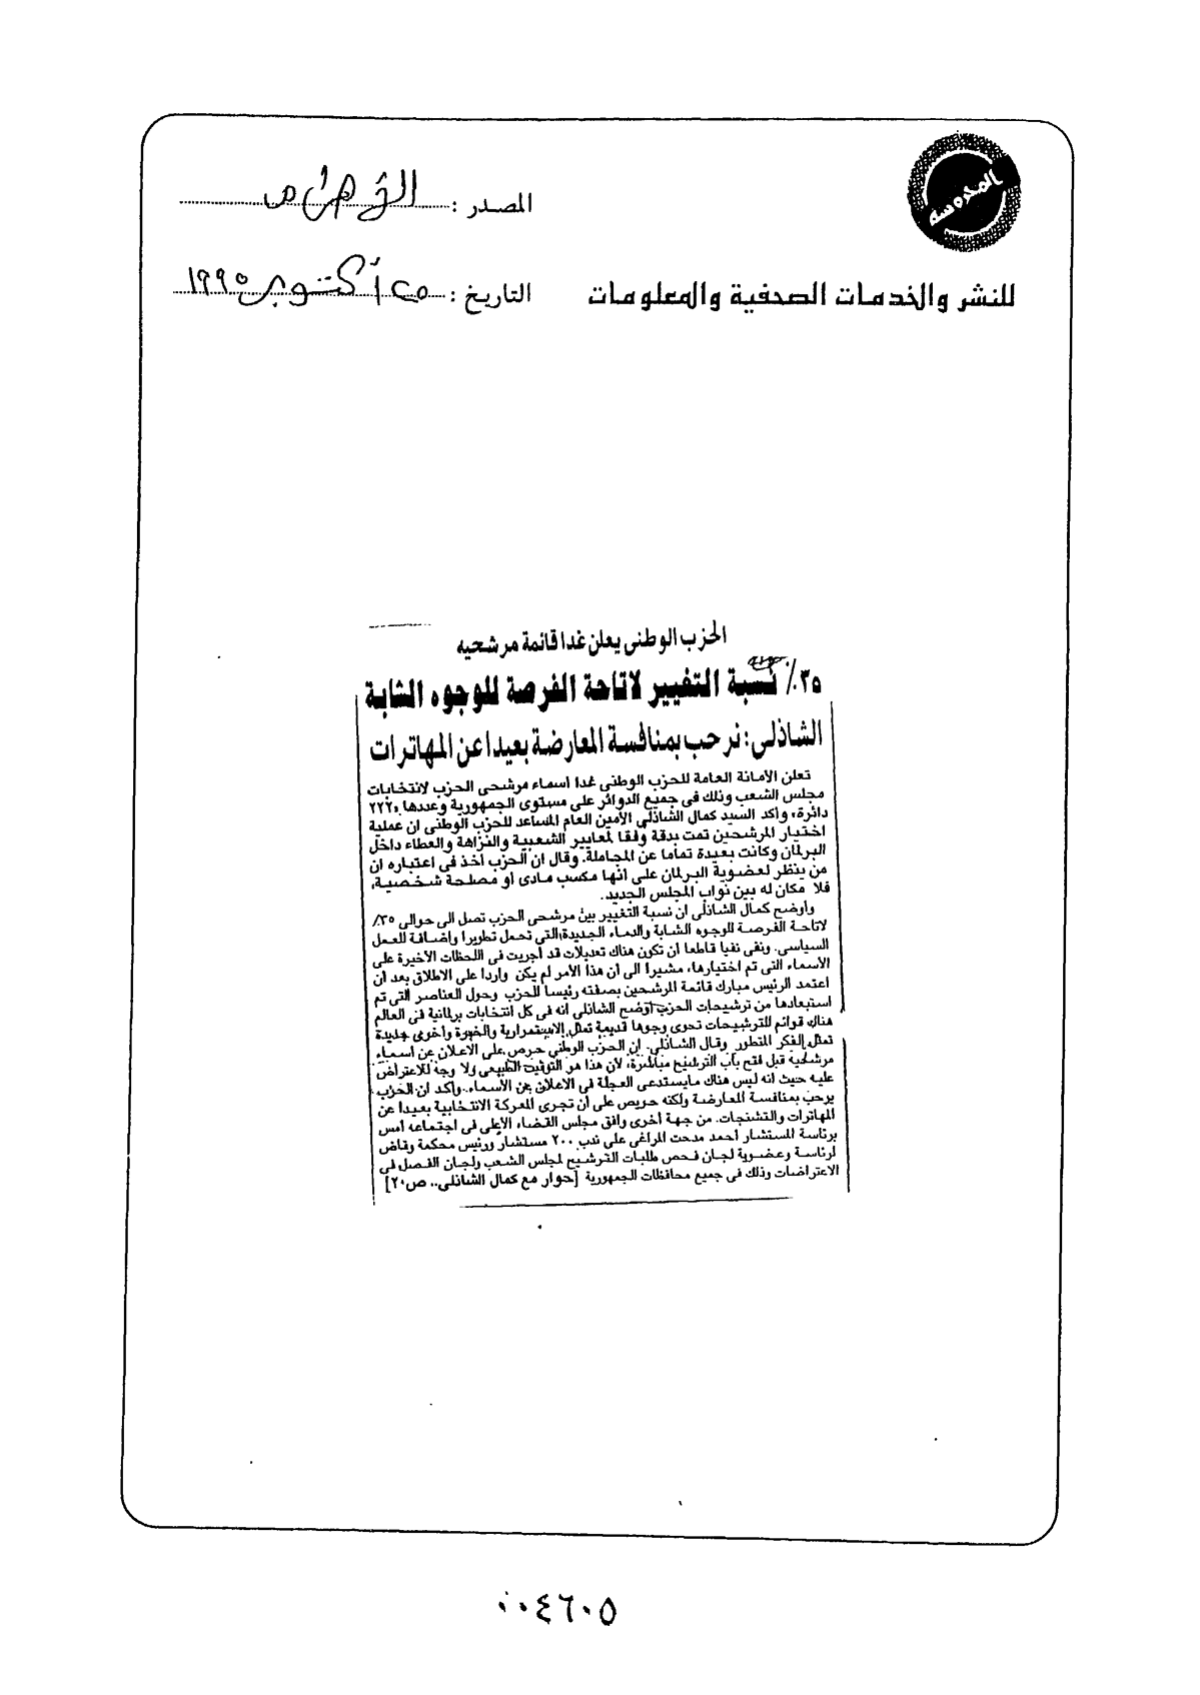 المحروسة
المصدر : الأهرام
للنشر والخدمات الصحفية والمعلومات
التاريخ : ٢٥ أكتوبر ١٩٩٥
الحزب الوطنى يعلن غدا قائمة مرشحيه
٣٥٪ نسبة التغيير لاتاحة الفرصة للوجوه الشابة
الشاذلى : نرحب بمنافسة المعارضة بعيدا عن المهاترات
تعلن الأمانة العامة للحزب الوطنى غدا اسماء مرشحى الحزب لانتخابات
مجلس الشعب وذلك فى جميع الدوائر على مستوى الجمهورية وعددها ٢٢٢
دائرة، وأكد السيد كمال الشاذلى الأمين العام المساعد للحزب الوطنى ان عملية
اختيار المرشحين تمت بدقة وفقا لمعايير الشعبية والنزاهة والعطاء داخل
البرلمان وكانت بعيدة تماما عن المجاملة. وقال ان الحزب أخذ فى اعتباره ان
من ينظر لعضوية البرلمان على انها مكسب مادى او مصلحة شخصية،
فلا مكان له بين نواب المجلس الجديد.
وأوضح كمال الشاذلى ان نسبة التغيير بين مرشحى الحزب تصل الى حوالى ٣٥٪
لاتاحة الفرصة للوجوه الشابة والدماء الجديدة التى تحمل تطويرا وإضافة للعمل
السياسى. ونفى نفيا قاطعا ان تكون هناك تعديلات قد أجريت فى اللحظات الأخيرة على
الأسماء التى تم اختيارها، مشيرا الى أن هذا الأمر لم يكن واردا على الاطلاق بعد أن
اعتمد الرئيس مبارك قائمة المرشحين بصفته رئيسا للحزب وحول العناصر التى تم
استبعادها من ترشيحات الحزب أوضح الشاذلى انه فى كل انتخابات برلمانية فى العالم
هناك قوائم للترشيحات تحوى وجوها قديمة تمثل الاستمرارية والخبرة وأخرى جديدة
تمثل الفكر المتطور وقال الشاذلى. ان الحزب الوطنى حرص على الاعلان عن اسماء
مرشحيه قبل فتح باب الترشيح مباشرة، لأن هذا هو التوقيت الطبيعى ولا وجه للاعتراض
عليه حيث انه ليس هناك مايستدعى العجلة فى الاعلان عن الأسماء. وأكد ان الحزب
يرحب بمنافسة المعارضة ولكنه حريص على أن تجرى المعركة الانتخابية بعيدا عن
المهاترات والتشنجات. من جهة أخرى وافق مجلس القضاء الأعلى فى اجتماعه أمس
برئاسة المستشار احمد مدحت المراغى على ندب ٢٠٠ مستشار ورئيس محكمة وقاض
لرئاسة وعضوية لجان فحص طلبات الترشيح لمجلس الشعب ولجان الفصل فى
الاعتراضات وذلك فى جميع محافظات الجمهورية [حوار مع كمال الشاذلى.. ص٢٠]
٠٠٤٦٠٥